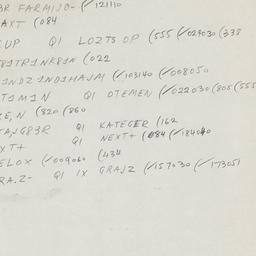 3R FARMIJO- (✓121110
AXT (084
CUP QI LOZTS OP (555 (✓029030 (338
T81TR1NK81N (022
1NDZ1ND1HAJM (✓103140 (✓008050
T1M1N QI OTEMEN (✓022030 (805 (555
ZE,N (820 (860
TAJG83R QI KATEGER (162
XT+ QI NEXT+ (084 (✓184040
ELOX (✓009060 (434
RA.Z- QI IX GRAJZ (✓157030 (✓173051